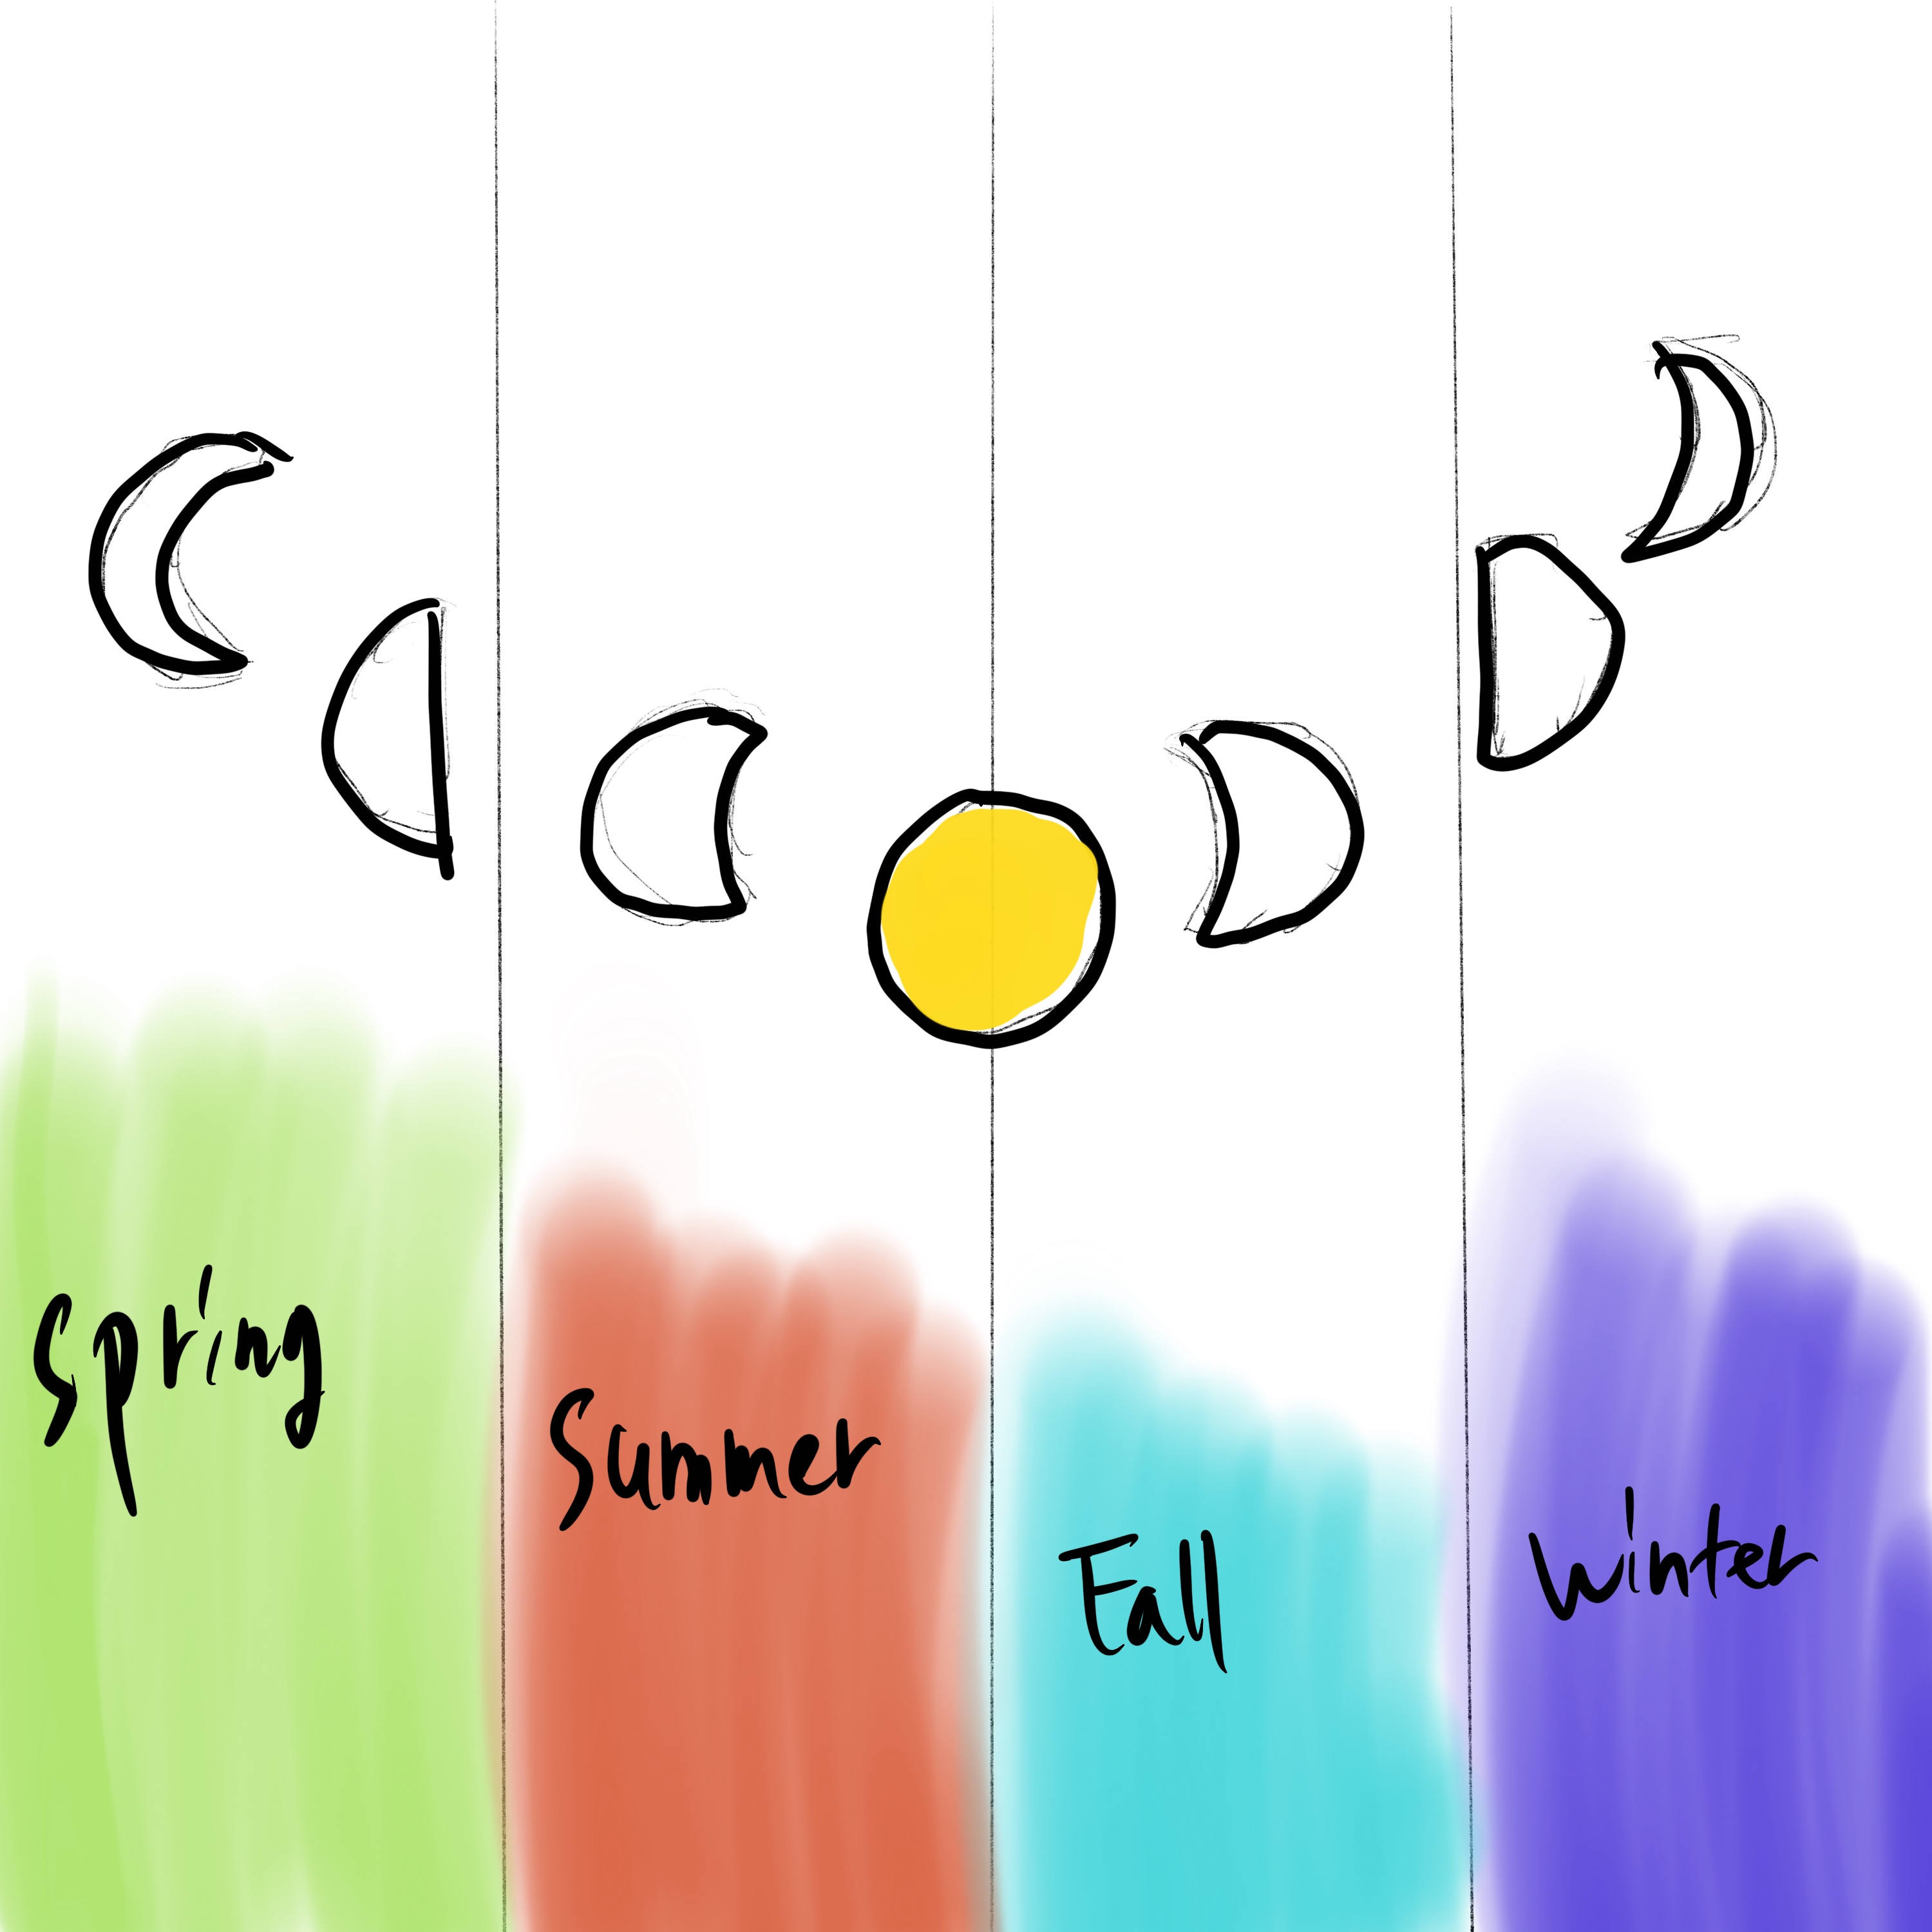 Spring
Summer
Fall
Winter